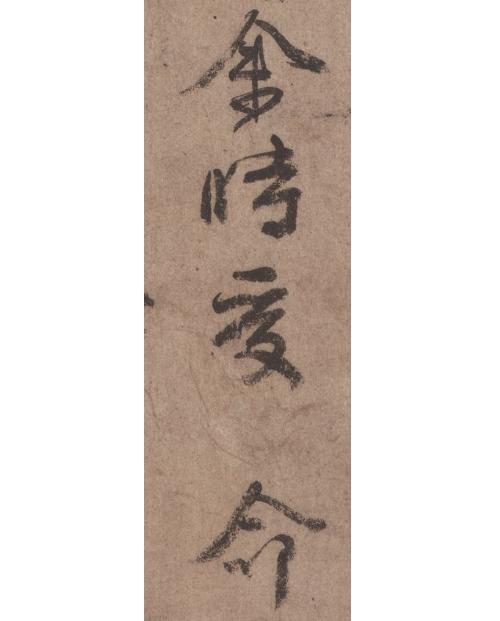 余時受命